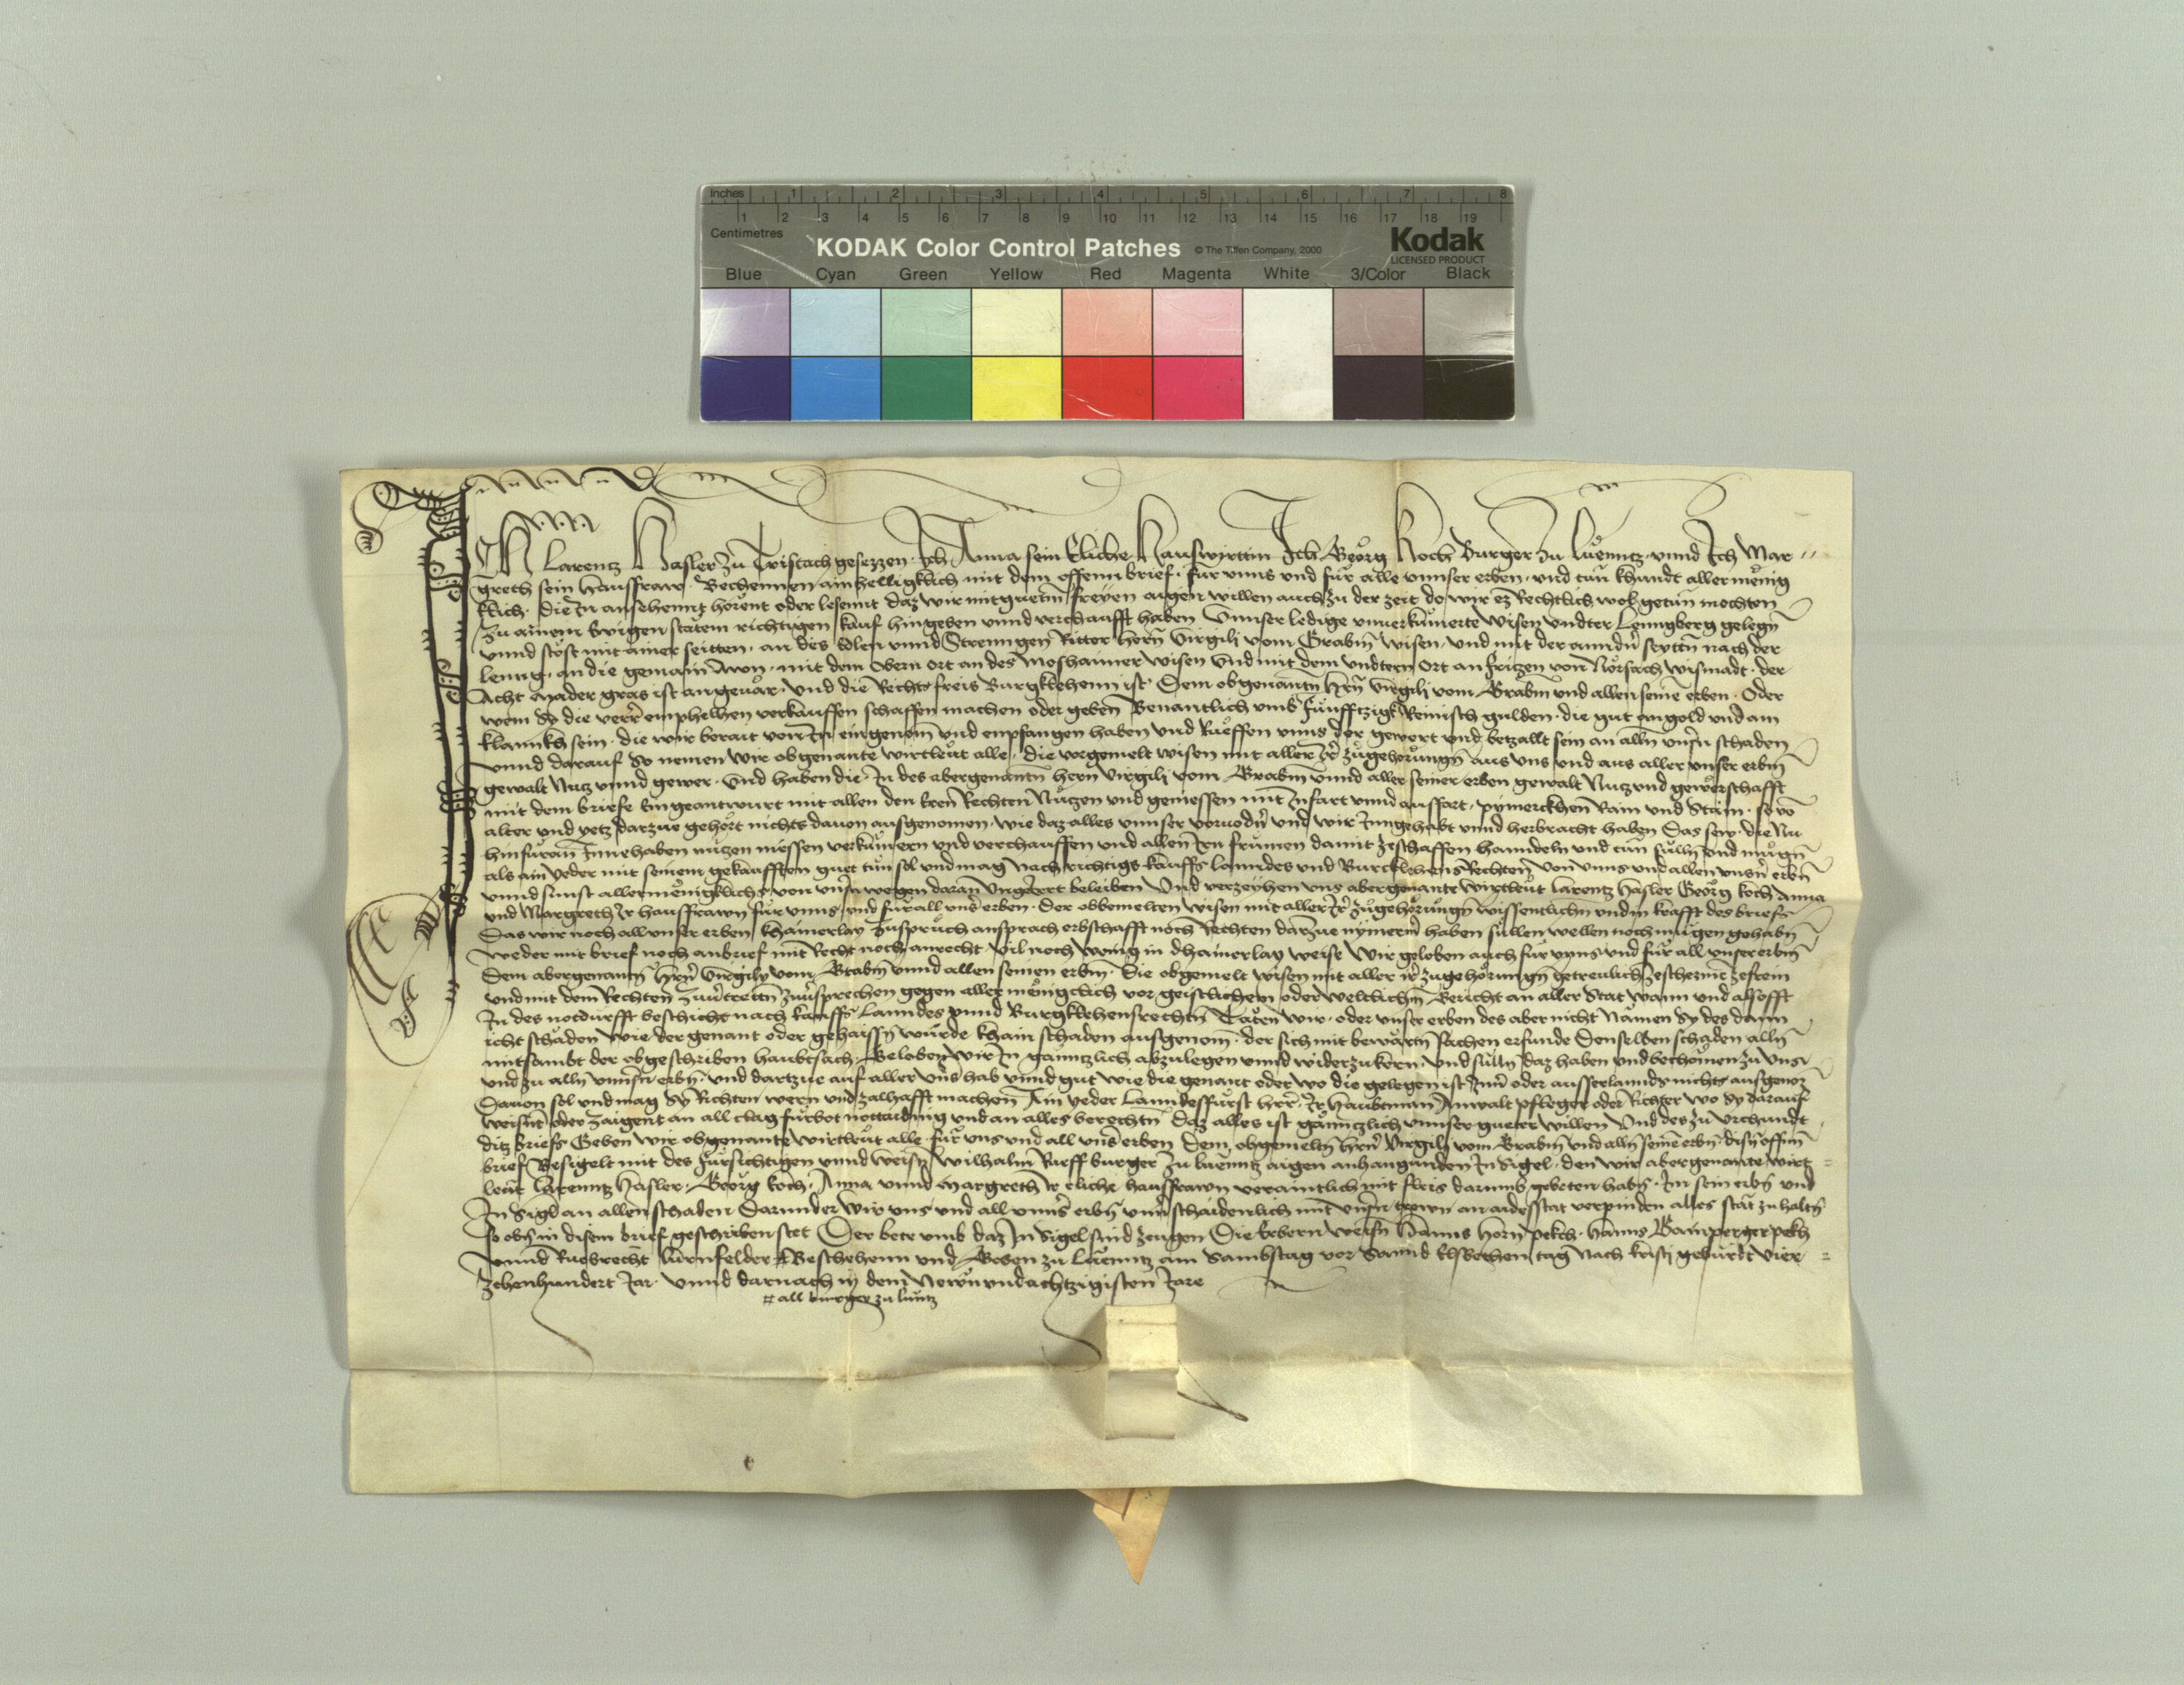 Inches 1 2 3 4 5 6 7 8
1 2 3 4 5 6 7 8 9 10 11 12 13 14 15 16 17 18 19
Centimetres
KODAK Color Control Patches © The Tiffen Company, 2000 Kodak
LICENSED PRODUCT
Blue Cyan Green Yellow Red Magenta White 3/Color Black
Ich Larentz Hasler zu Tristach gesezzen. Ich Anna sein Eliche Hauswirttin Ich Georg Koch Burger zu Luenntz vnnd Ich Mar
greth sein hausfraw. Bechennen ainhelligklich mit dem offenn brief. für vnns vnd für alle vnnser erben. vnd tun khundt allermenig
klich. die In ansehennt horent oder lesennt daz wir mit guetm freyen aigen willen auch zu der zeit do wir ez Rechtlich wol getun mochten
Zu ainem Ewigen statem richtigen kauf hingeben vnnd verchaufft haben Vnnser ledige vnuerkumerte Wisen vndter Lenngberg gelegn
vnnd stost mit ainer seitten. an des Edlen vnnd Strenngen Ritter hern Virgilj vom Grabm wisen, vnd mit der anndn seyttn nach der
lenng. an die gemain Awn. mit dem Obern ort an des Moshaimer wisen Vnd mit dem vndtern Ort an fritzen von Norsach wismadt. der
Acht mader gras ist angeuär. vnd die Rechts freis Burgklehenn ist. Dem obgenantn hrn Virgilj vom Grabm vnd allen seine erben. Oder
wem Sy die verrer emphelhen verkauffen schaffen machen oder geben Benantlich vmb fünfftzigk Reinisch gulden. die gut an gold vnd am
klannkh sein. die wir berait von In eingenom vnd empfangen haben vnd Rueffen vnns der gewert vnd betzallt sein an alln vnsn schaden
vnnd darauf So nemen wir obgenante wirtleut alle. die vorgemelt wisen mit aller Ir zugehorungn aus vns vnd aus aller vnser erbm
gewalt Nutz vnnd gewer. Vnd haben die. In des abergenantn hern Virgilj vom Grabm vnnd aller seiner erben gewalt Nutz vnd gewerschafft
mit dem briefe Eingeantwurt mit allen den Eren Rechten Nutzen vnd geniessen mit Infart vnnd ausfart, pymerckhen Rain vnd Stain. so vo
alter vnd yetz darzue gehort nichts dauon ausgenomen. wie daz alles vnnser voruodn vnd wir Inngehabt vnnd herbracht haben Das sew. die Nu
hinfuran Innehaben nutzen niessen verkumern vnd verchauffen vnd allen Irn frumen damit zeschaffen hanndeln vnd tun sulln vnd mugn
als ain yeder mit seinem gekaufften guet tun sol vnd mag Nach richtigs kauffs lanndes vnd Burcklehens Rechten Von vnns vnd allen vnsn erbn
vnnd sunst allermenigklichs von vnsn wegen daran Vngeirret beleiben Vnd verzeyhen vns abergenante Wirtleut Larentz Hasler Georg koch Anna
vnd Margreth Ir hausfrawn für vnns vnd für all vns erben. Der obbemelten wisen mit aller Ir zugehorungn wissentlichn vnd in krafft des briefs
Das wir noch all vnser erben khainerlay Zuspruch ansprach erbschafft noch Rechten darzue nymerm haben sullen wellen noch mugen gehabn
weder mit brief noch anbrief mit Recht noch anrecht Vil noch wenig in dhainerlay weise Wir geloben auch für vnns vnd für all vnser erbm
Dem abergenantn hrn Virgily vom Grabm vnnd allen seinen erbm. Die obgemelt wisen mit aller ir zugehorungn getreulich zescherme zefreien
vnd mit dem Rechten Zuuertretn zuuersprechen gegen aller menigclich vor geistlichem oder weltlichm Gericht an aller Stat wann vnd alsofft
In des notdurfft beschicht nach kauffs Lanndes vnnd Burgklehensrechtn Täten wir. oder vnser erben des aber nicht Nämen Sy des dann
icht schaden wie der genant oder gehaissn wurde khain schaden ausgenom. der sich mit bewartn Sachen erfunde Denselben schaden alln
mitsambt der obgeschriben haubtsach. Geloben Wir In ganntzlich abzulegen vnnd widerzukern. Vnd sulln daz haben vnd bechomen zu vns
vnd zu alln vnnsn erbn. vnd dartzue auf aller vns hab vnnd gut wie die genant oder wo die gelegen ist Inn oder ausserlannds nichts ausgenoz
Dauon sol vnd mag Sy Richten wern vnd zalhafft machen Ain yeder Lanndesfurst herr. Ir haubtman Anwalt pfleger oder Richter wo Sy darauf
weisnt oder zaigent an all clag fürbot nottading vnd an alles berechtn Daz alles ist ganntzlich vnnser gueter willen Vnd des zu Vrchundt
ditz briefs Geben wir obgenante wirtleut alle. für vns vnd all vns erben Dem obgemeltn hrn Virgilj vom Grabm vnd alln seine erbn. disn offnn
brief Besigelt mit des fürsichtigen vnnd weisn Wilhalm Rueff burger zu Luenntz aigen anhangunden In Sigel. den wir abergenante wirt
leut Larenntz Hasler. Georg koch. Anna vnnd Margreth Ir eliche hausfrawn veraintlich mit fleis darumb gebeten habn. Im sein erbn vnd
In Sigl an allen schaden Darunder Wir vns vnd all vnns erbn vnuerschaidenlich mit vnsn trewn an aidesstat verpinden alles stät zu haltn
so obn in disem brief geschriben stet Der bete vmb daz In Sigel sind zeugen Die Erbern weisn Hanns horn pekch. hanns Gamperger pekh
vnnd Ruebrecht lürnfelder Beschehenn vnd Geben zu Luenntz am Sambstag vor Sannd Elsbethen tag Nach kristj geburdt Vier
zehenhundert Jar. vnnd darnach in dem Newn vndachtzigisten Jare
all burger zu luntz